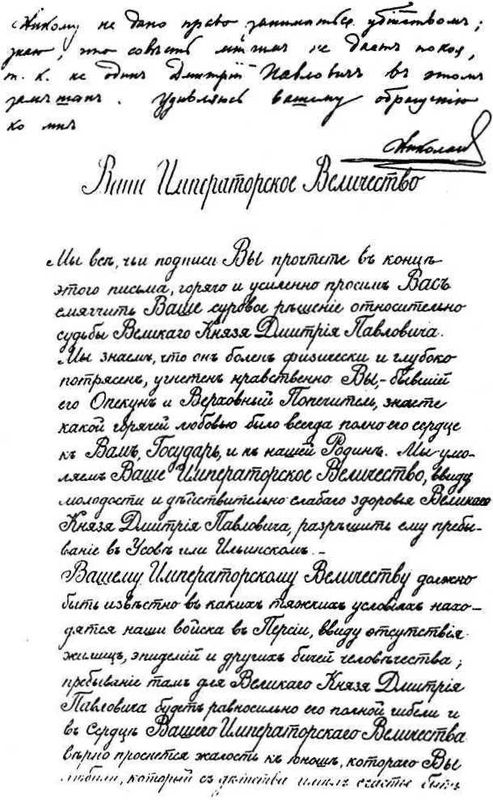 Никому не дано право заниматься убійствомъ;
знаю, что совѣсть многимъ не даетъ покоя,
т. к. не одинъ Дмитрій Павловичъ въ этомъ
замѣшанъ. Удивляюсь вашему обращенію
ко мнѣ
Николай
Ваше Императорское Величество
Мы всѣ, чьи подписи Вы прочтете въ концѣ
этого письма, горячо и усиленно просимъ Васъ
смягчить Ваше суровое рѣшеніе относительно
судьбы Великаго Князя Дмитрія Павловича.
Мы знаемъ, что онъ боленъ физически и глубоко
потрясенъ, угнетенъ нравственно. Вы,-бывшій
его Опекунъ и Верховный Попечитель, знаете
какой горячей любовью было всегда полно его сердце
къ Вамъ, Государь, и къ нашей Родинѣ. Мы умо-
ляемъ Ваше Императорское Величество, ввиду
молодости и дѣйствительно слабаго здоровья Великаго
Князя Дмитрія Павловича, разрѣшить ему пребы-
ваніе въ Усовѣ или Ильинскомъ.-
Вашему Императорскому Величеству должно
быть извѣстно въ какихъ тяжкихъ условіяхъ нахо-
дятся наши войска въ Персіи, ввиду отсутствія
жилищъ, эпидемій и другихъ бичей человѣчества;
пребываніе тамъ для Великаго Князя Дмитрія
Павловича будетъ равносильно его полной гибели и
въ Сердцѣ Вашего Императорскаго Величества
вѣрно проснется жалость къ юношѣ, котораго Вы
любили, который съ дѣтства имѣлъ счастье быть